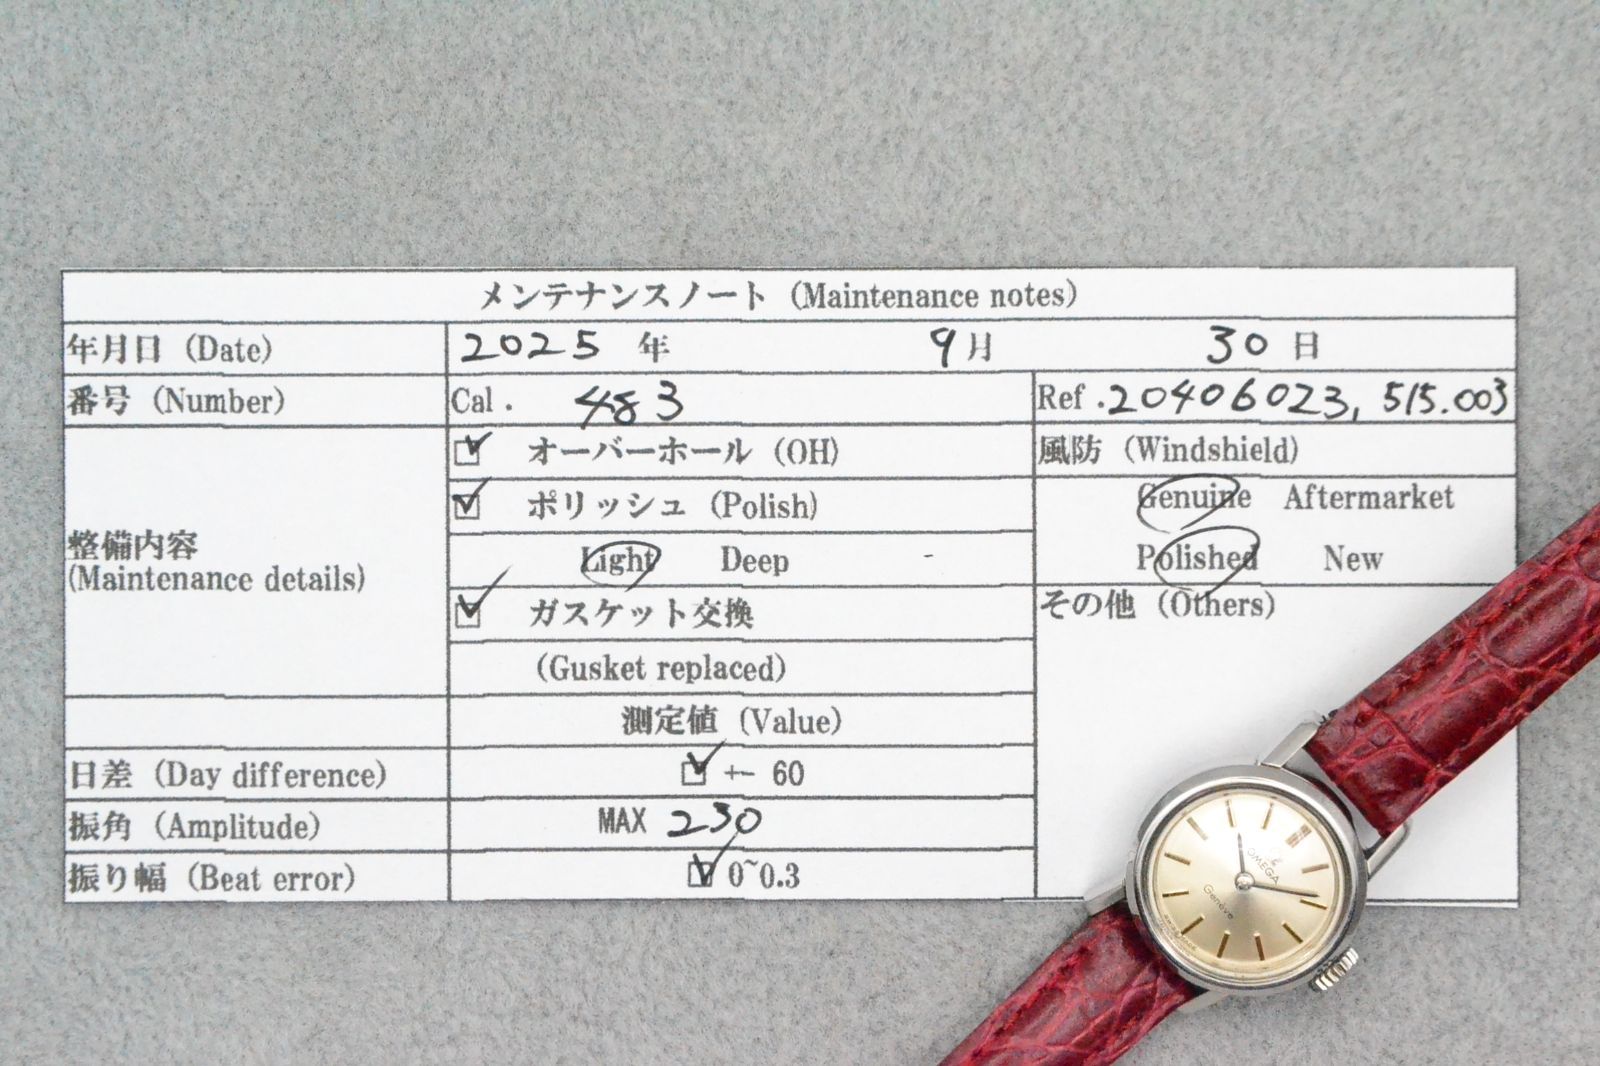 メンテナンスノート (Maintenance notes)
年月日 (Date) 2025 年 9月 30 日
番号 (Number) Cal . 483 Ref . 20406023, 515.003
整備内容
(Maintenance details)
オーバーホール (OH)
ポリッシュ (Polish)
Light Deep -
ガスケット交換
(Gusket replaced)
風防 (Windshield)
Genuine Aftermarket
Polished New
その他 (Others)
測定値 (Value)
日差 (Day difference) +- 60
振角 (Amplitude) MAX 230
振り幅 (Beat error) 0~0.3
OMEGA
Genève